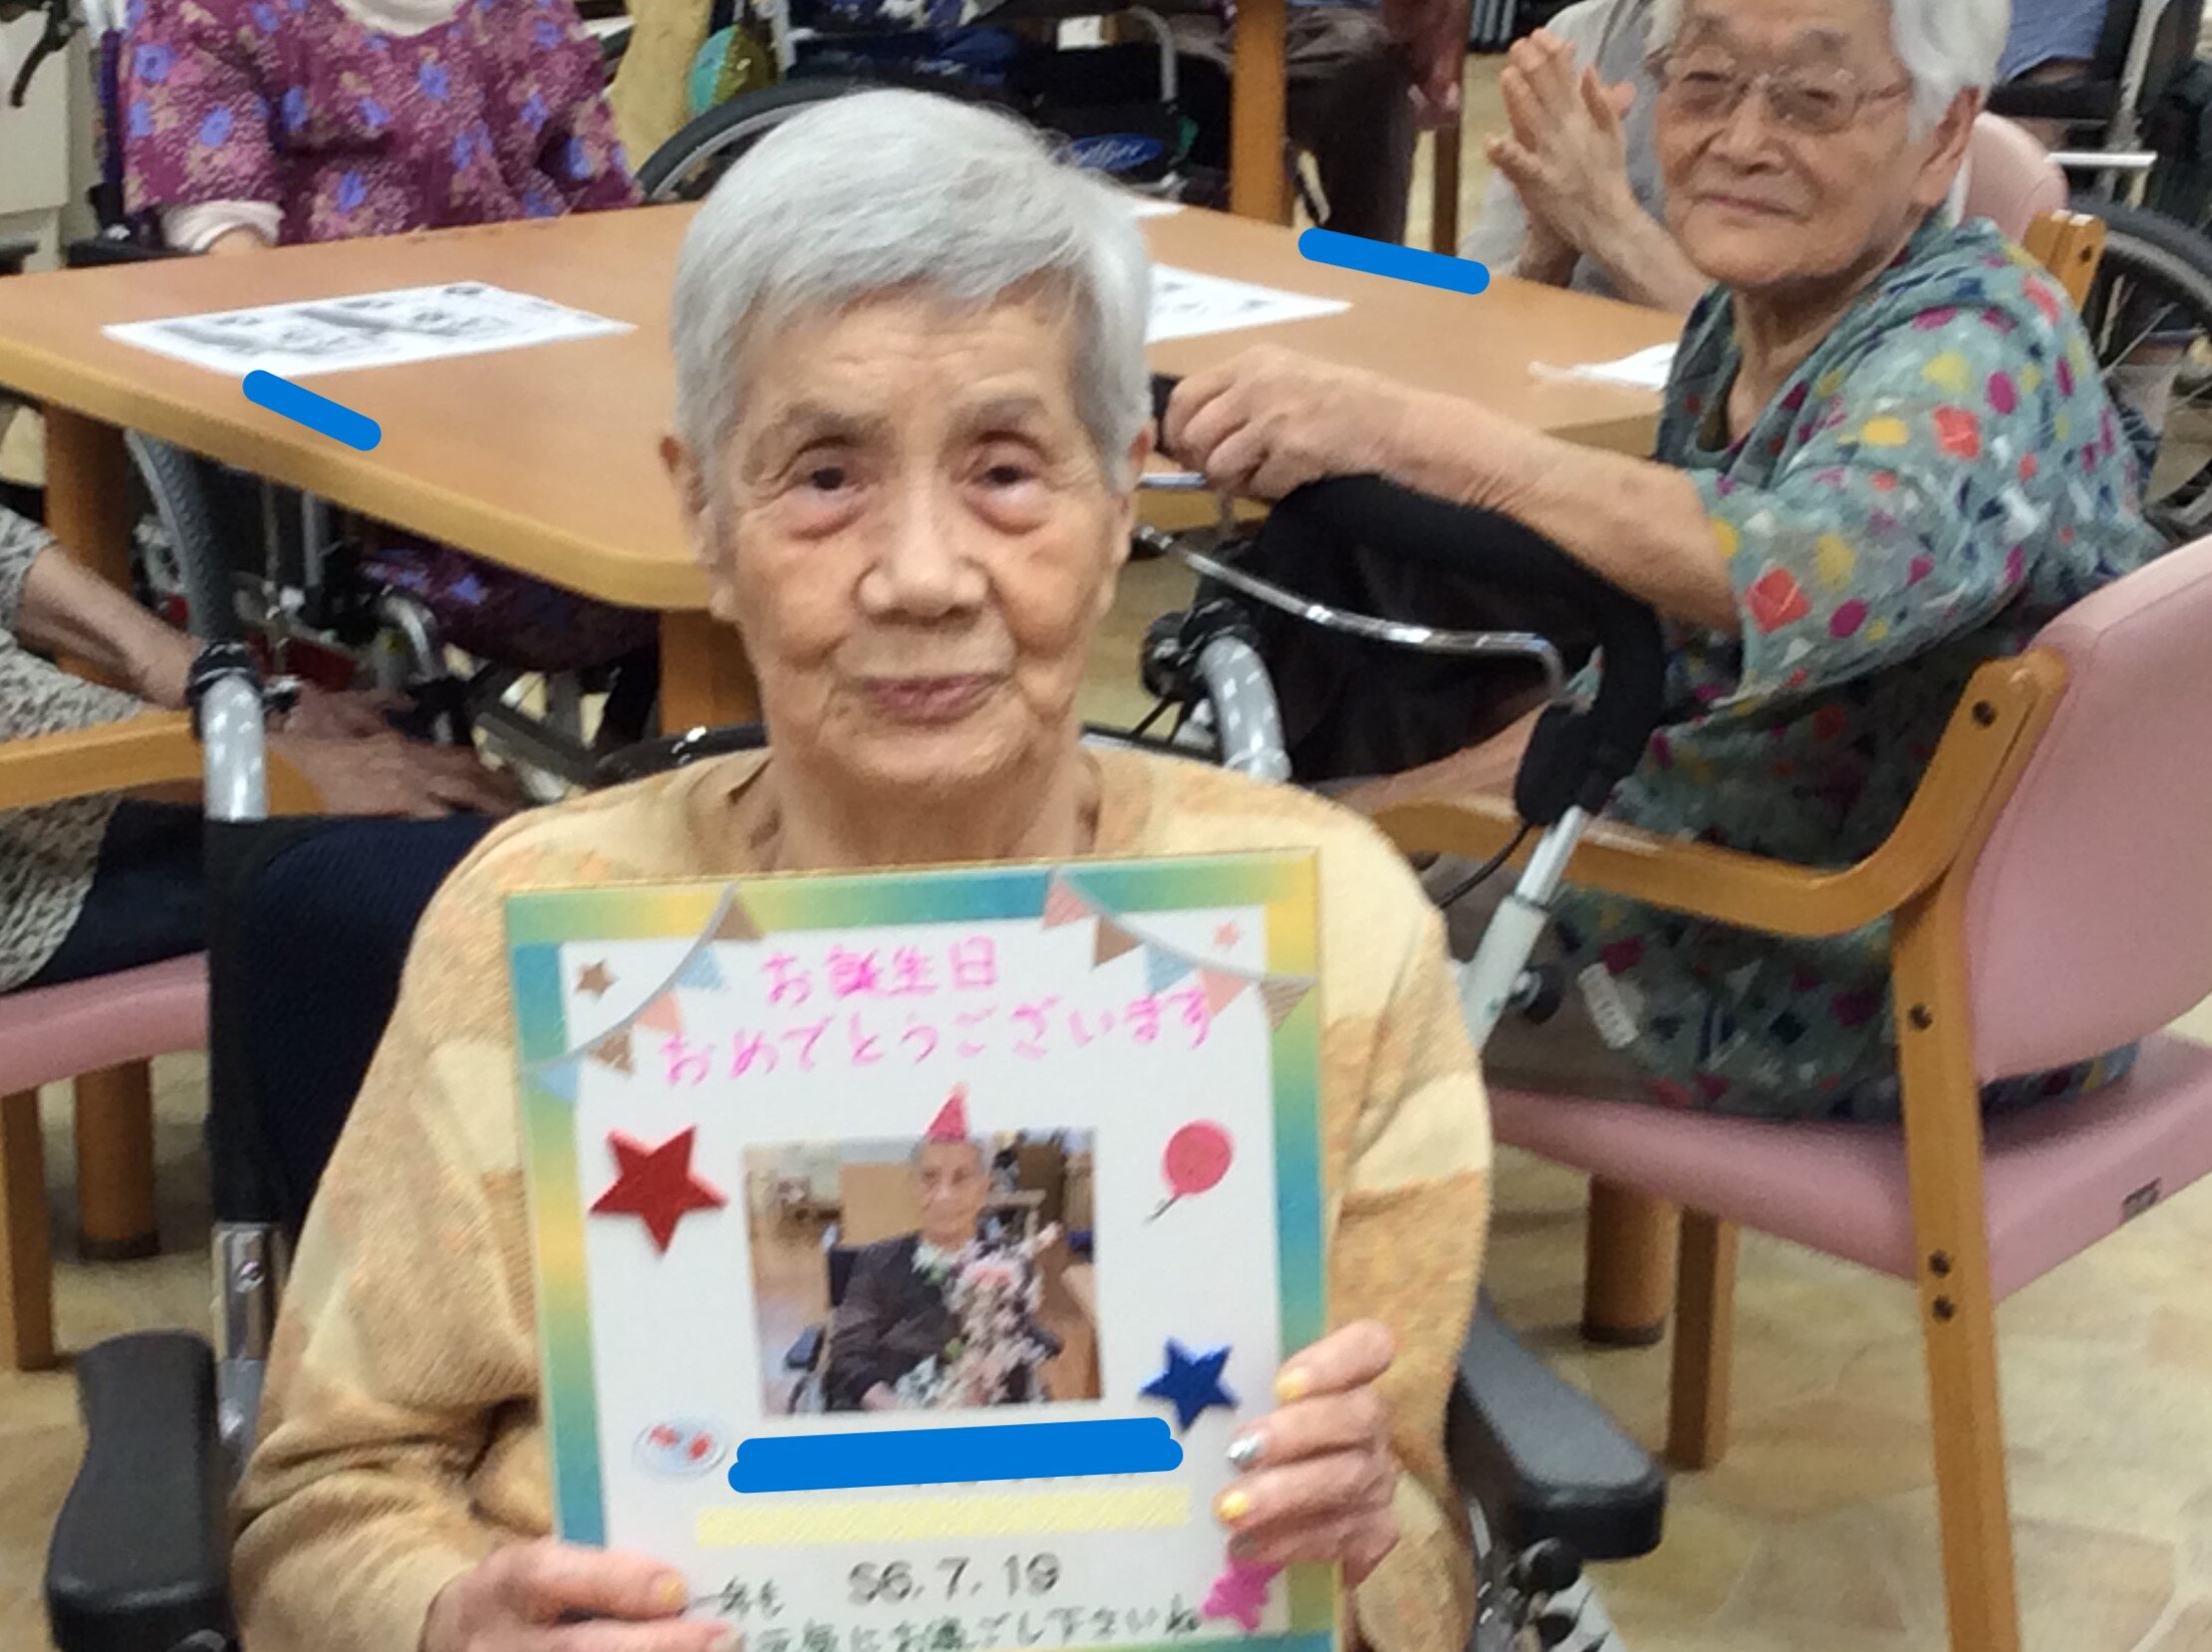 お誕生日
おめでとうございます
S6.7.19
お過ごし下さいね